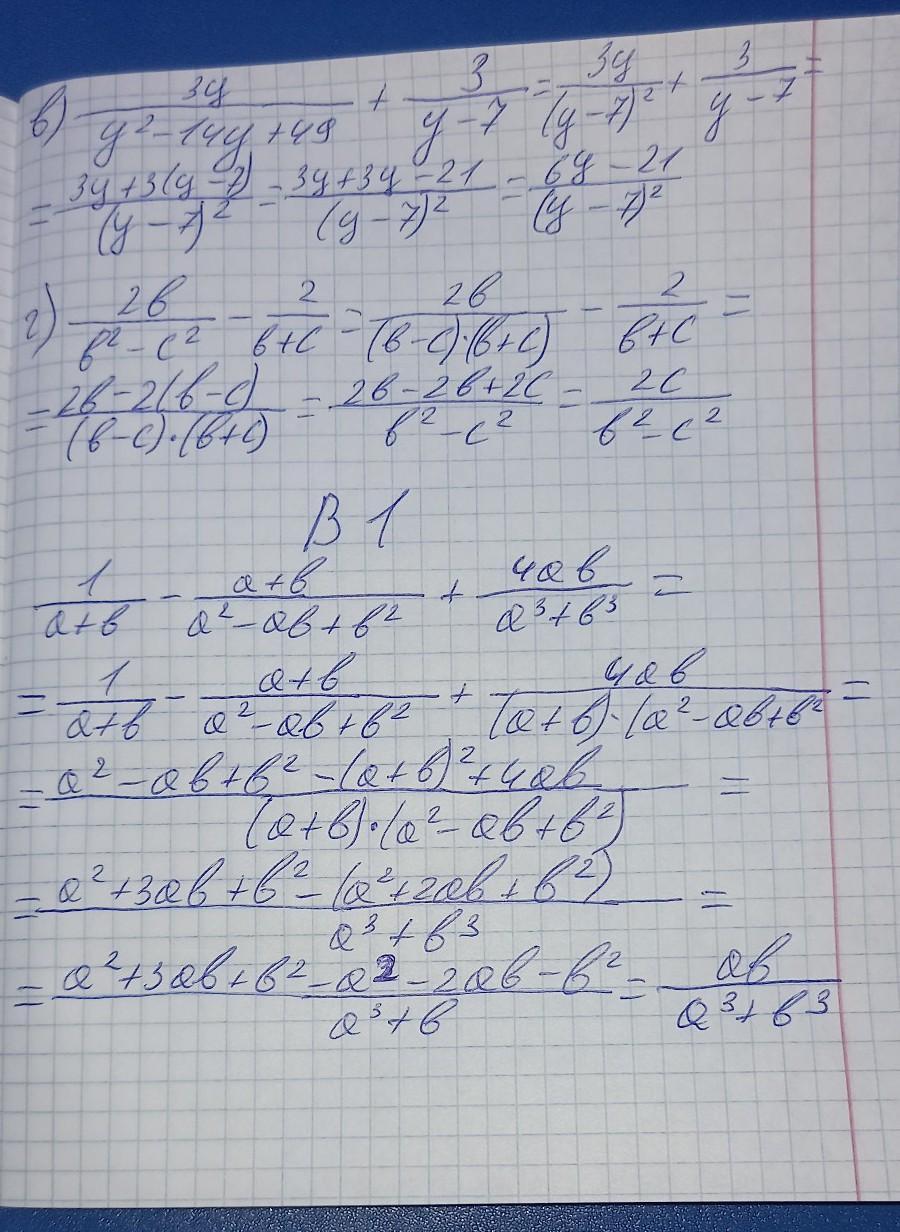 в) 3y/(y²-14y+49) + 3/(y-7) = 3y/(y-7)² + 3/(y-7) =
= (3y+3(y-7))/(y-7)² = (3y+3y-21)/(y-7)² = (6y-21)/(y-7)²
г) 2в/(в²-c²) - 2/(в+c) = 2в/((в-c)·(в+c)) - 2/(в+c) =
= (2в-2(в-c))/((в-c)·(в+c)) = (2в-2в+2c)/(в²-c²) = 2c/(в²-c²)
В 1
1/(a+в) - (a+в)/(a²-aв+в²) + 4aв/(a³+в³) =
= 1/(a+в) - (a+в)/(a²-aв+в²) + 4aв/((a+в)·(a²-aв+в²) =
= (a²-aв+в²-(a+в)²+4aв)/((a+в)·(a²-aв+в²)) =
= (a²+3aв+в²-(a²+2aв+в²))/(a³+в³) =
= (a²+3aв+в²-a²-2aв-в²)/(a³+в) = aв/(a³+в³)